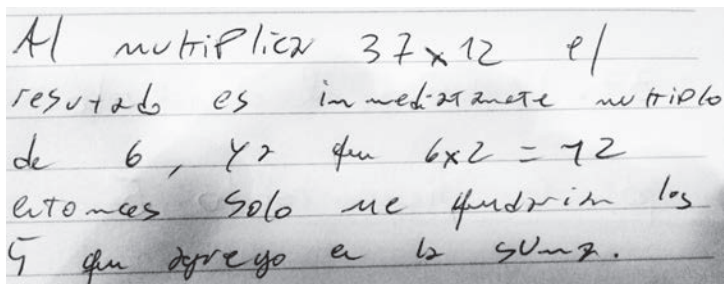 Al multiplicar 37x12 el
resutado es inmediatamete multiplo
de 6, ya que 6x2 = 12
entonces solo me quedarian los
5 que agrego en la suma.